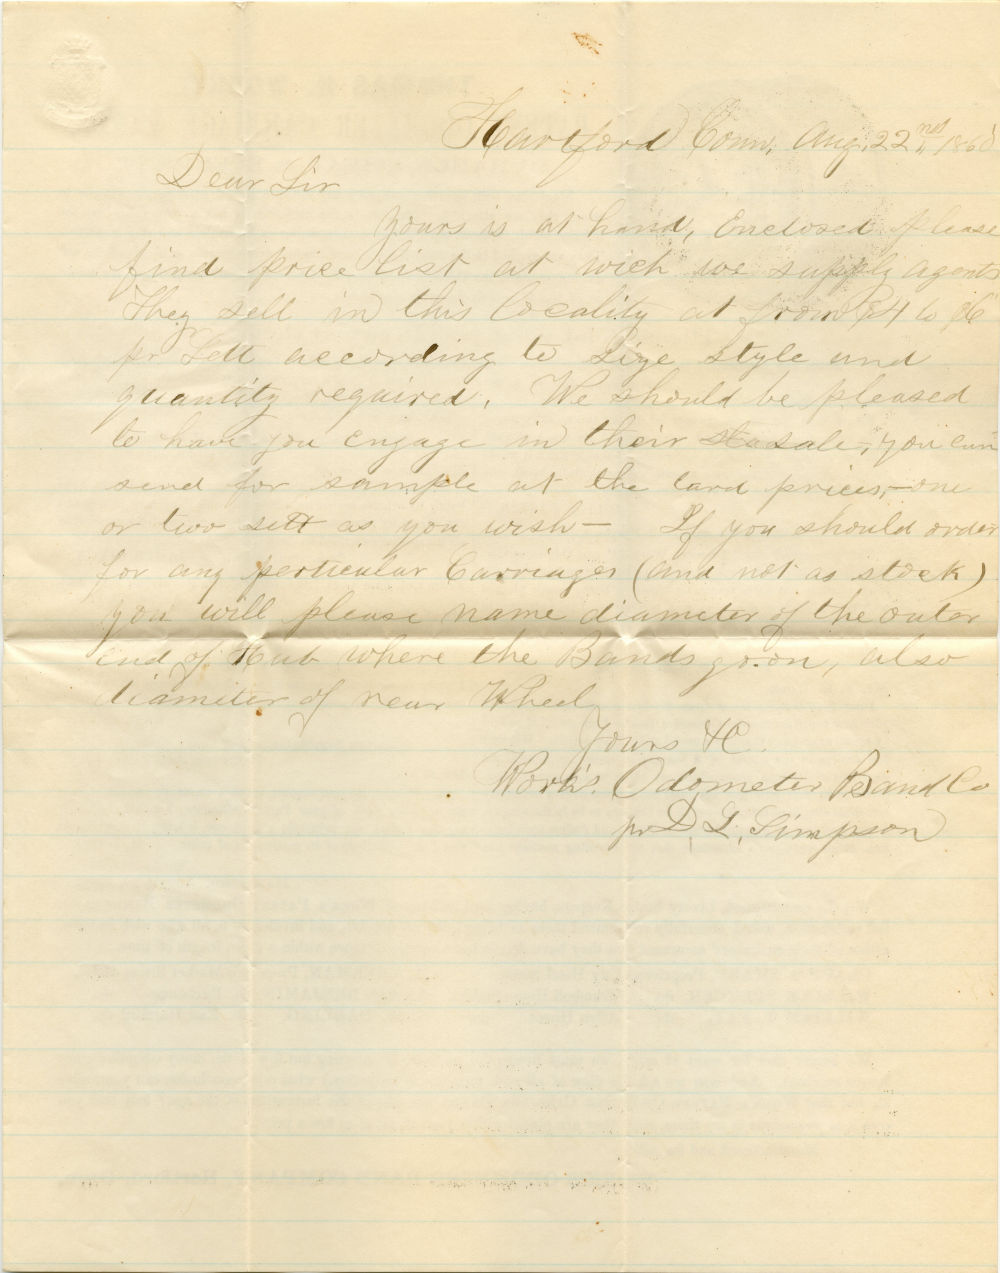 Hartford Conn. Aug. 22nd, 1860
Dear Sir
Yours is at hand, Enclosed please
find price list at wich we supply agents
They sell in this locality at from $4 to $6
pr Sett according to Size style and
quantity required. We should be pleased
to have you engage in their sale, you can
send for sample at the card prices,—one
or two sett as you wish— If you should order
for any perticular Carriages (and not as stock)
you will please name diameter of the outer
end of Hub where the Bands go on, also
diamiter of rear Wheel
Yours &C.
Work's. Odometer Band Co
pr D. L. Simpson